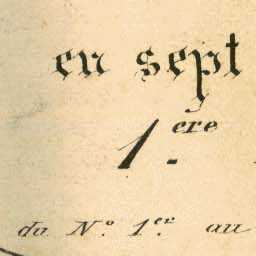 en sept
1.ere
du N° 1.er au